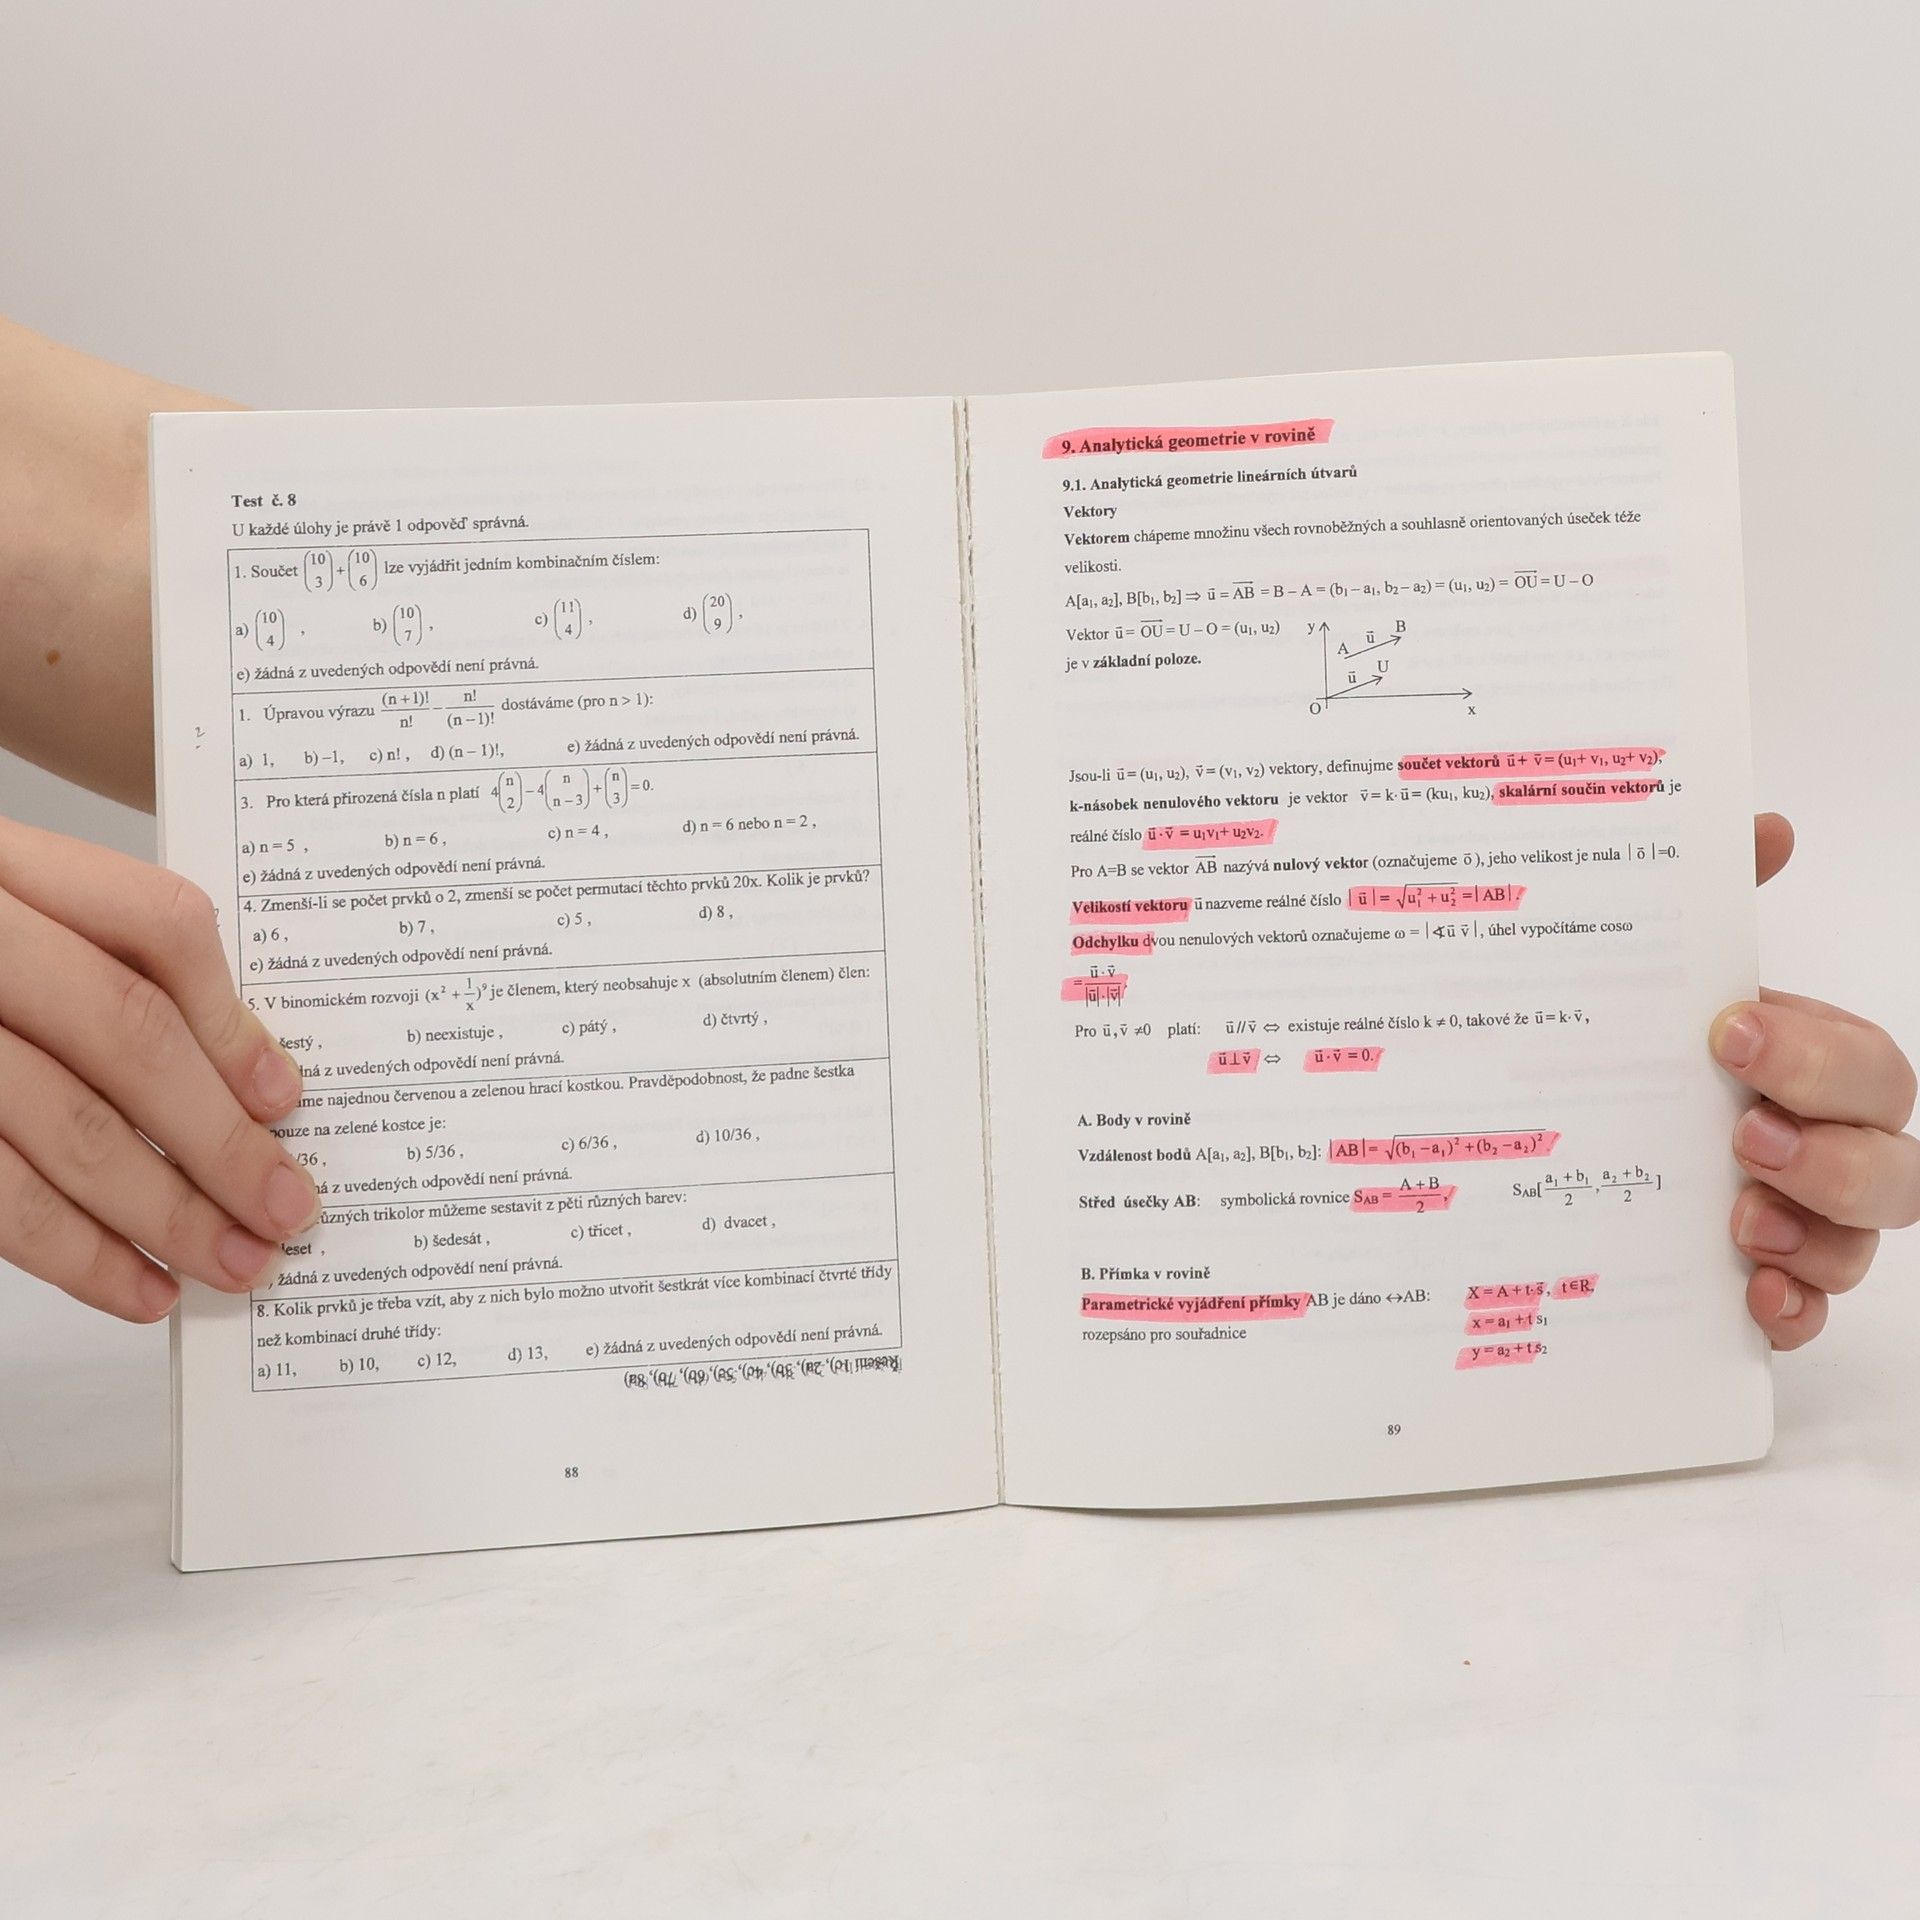 Test č. 8
U každé úlohy je právě 1 odpověď správná.
1. Součet (10 3) + (10 6) lze vyjádřit jedním kombinačním číslem:
a) (10 4) , b) (10 7) , c) (11 4) , d) (20 9) ,
e) žádná z uvedených odpovědí není právná.
1. Úpravou výrazu (n+1)!/n! − n!/(n−1)! dostáváme (pro n > 1):
a) 1, b) −1, c) n! , d) (n − 1)!, e) žádná z uvedených odpovědí není právná.
3. Pro která přirozená čísla n platí 4(n 2) − 4(n n−3) + (n 3) = 0.
a) n = 5 , b) n = 6 , c) n = 4 , d) n = 6 nebo n = 2 ,
e) žádná z uvedených odpovědí není právná.
4. Zmenší-li se počet prvků o 2, zmenší se počet permutací těchto prvků 20x. Kolik je prvků?
a) 6 , b) 7 , c) 5 , d) 8 ,
e) žádná z uvedených odpovědí není právná.
5. V binomickém rozvoji (x² + 1/x)⁹ je členem, který neobsahuje x (absolutním členem) člen:
šestý , b) neexistuje , c) pátý , d) čtvrtý ,
z uvedených odpovědí není právná.
najednou červenou a zelenou hrací kostkou. Pravděpodobnost, že padne šestka
pouze na zelené kostce je:
/36 , b) 5/36 , c) 6/36 , d) 10/36 ,
z uvedených odpovědí není právná.
různých trikolor můžeme sestavit z pěti různých barev:
b) šedesát , c) třicet , d) dvacet ,
, žádná z uvedených odpovědí není právná.
8. Kolik prvků je třeba vzít, aby z nich bylo možno utvořit šestkrát více kombinací čtvrté třídy
než kombinací druhé třídy:
a) 11, b) 10, c) 12, d) 13, e) žádná z uvedených odpovědí není právná.
Řešení 1c), 2a), 3b), 4c), 5e), 6b), 7b), 8a)
88
9. Analytická geometrie v rovině
9.1. Analytická geometrie lineárních útvarů
Vektory
Vektorem chápeme množinu všech rovnoběžných a souhlasně orientovaných úseček téže
velikosti.
A[a₁, a₂], B[b₁, b₂] ⇒ u⃗ = AB⃗ = B − A = (b₁ − a₁, b₂ − a₂) = (u₁, u₂) = OU⃗ = U − O
Vektor u⃗ = OU⃗ = U − O = (u₁, u₂)
je v základní poloze.
y A u⃗ B
u⃗ U
O x
Jsou-li u⃗ = (u₁, u₂), v⃗ = (v₁, v₂) vektory, definujme součet vektorů u⃗ + v⃗ = (u₁+ v₁, u₂+ v₂),
k-násobek nenulového vektoru je vektor v⃗ = k· u⃗ = (ku₁, ku₂), skalární součin vektorů je
reálné číslo u⃗ · v⃗ = u₁v₁+ u₂v₂.
Pro A=B se vektor AB⃗ nazývá nulový vektor (označujeme o⃗ ), jeho velikost je nula | o⃗ |=0.
Velikostí vektoru u⃗ nazveme reálné číslo | u⃗ | = √(u₁² + u₂²) = | AB | .
Odchylku dvou nenulových vektorů označujeme ω = | ∢u⃗ v⃗ | , úhel vypočítáme cosω
= (u⃗ · v⃗)/(|u⃗|·|v⃗|)
Pro u⃗ , v⃗ ≠0 platí: u⃗ // v⃗ ⇔ existuje reálné číslo k ≠ 0, takové že u⃗ = k· v⃗ ,
u⃗ ⊥ v⃗ ⇔ u⃗ · v⃗ = 0.
A. Body v rovině
Vzdálenost bodů A[a₁, a₂], B[b₁, b₂]: | AB | = √((b₁ − a₁)² + (b₂ − a₂)²) .
Střed úsečky AB: symbolická rovnice S_AB = (A + B)/2 , S_AB[(a₁ + b₁)/2 , (a₂ + b₂)/2]
B. Přímka v rovině
Parametrické vyjádření přímky AB je dáno ↔AB: X = A + t·s⃗ , t∈R,
rozepsáno pro souřadnice x = a₁ + t s₁
y = a₂ + t s₂
89